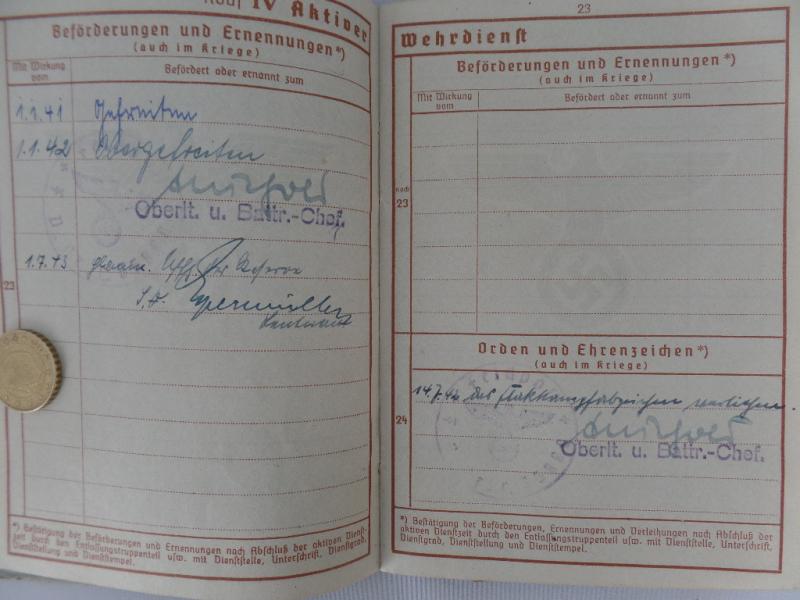 Noch IV Aktiver
Beförderungen und Ernennungen*)
(auch im Kriege)
Mit Wirkung vom
Befördert oder ernannt zum
1.1.41 Gefreiten
1.1.42 Obergefreiten
Oberlt. u. Battr.-Chef.
1.7.43 Uffz. der Reserve
Leutnant
23
*) Bestätigung der Beförderungen und Ernennungen nach Abschluß der aktiven Dienst-
zeit durch den Entlassungstruppenteil usw. mit Dienststelle, Unterschrift, Dienstgrad,
Dienststellung und Dienststempel.
23
Wehrdienst
Beförderungen und Ernennungen*)
(auch im Kriege)
Mit Wirkung vom
Befördert oder ernannt zum
noch
23
Orden und Ehrenzeichen*)
(auch im Kriege)
14.7.42 das Flakkampfabzeichen verliehen.
24
Oberlt. u. Battr.-Chef.
*) Bestätigung der Beförderungen, Ernennungen und Verleihungen nach Abschluß der
aktiven Dienstzeit durch den Entlassungstruppenteil usw. mit Dienststelle, Unterschrift,
Dienstgrad, Dienststellung und Dienststempel.